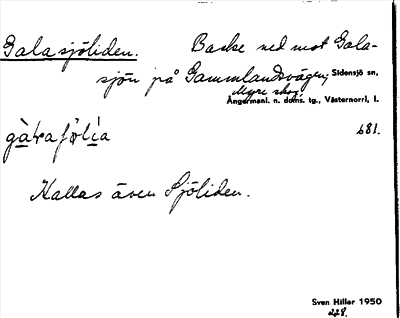 Galasjöliden. Backe ned mot Gala-
sjön på Gammlandsvägen, Sidensjö sn,
Myre skog.
Ångermanl. n. doms. tg., Västernorrl. l.
681.
Kallas även Sjöliden.
Sven Hiller 1950
228.